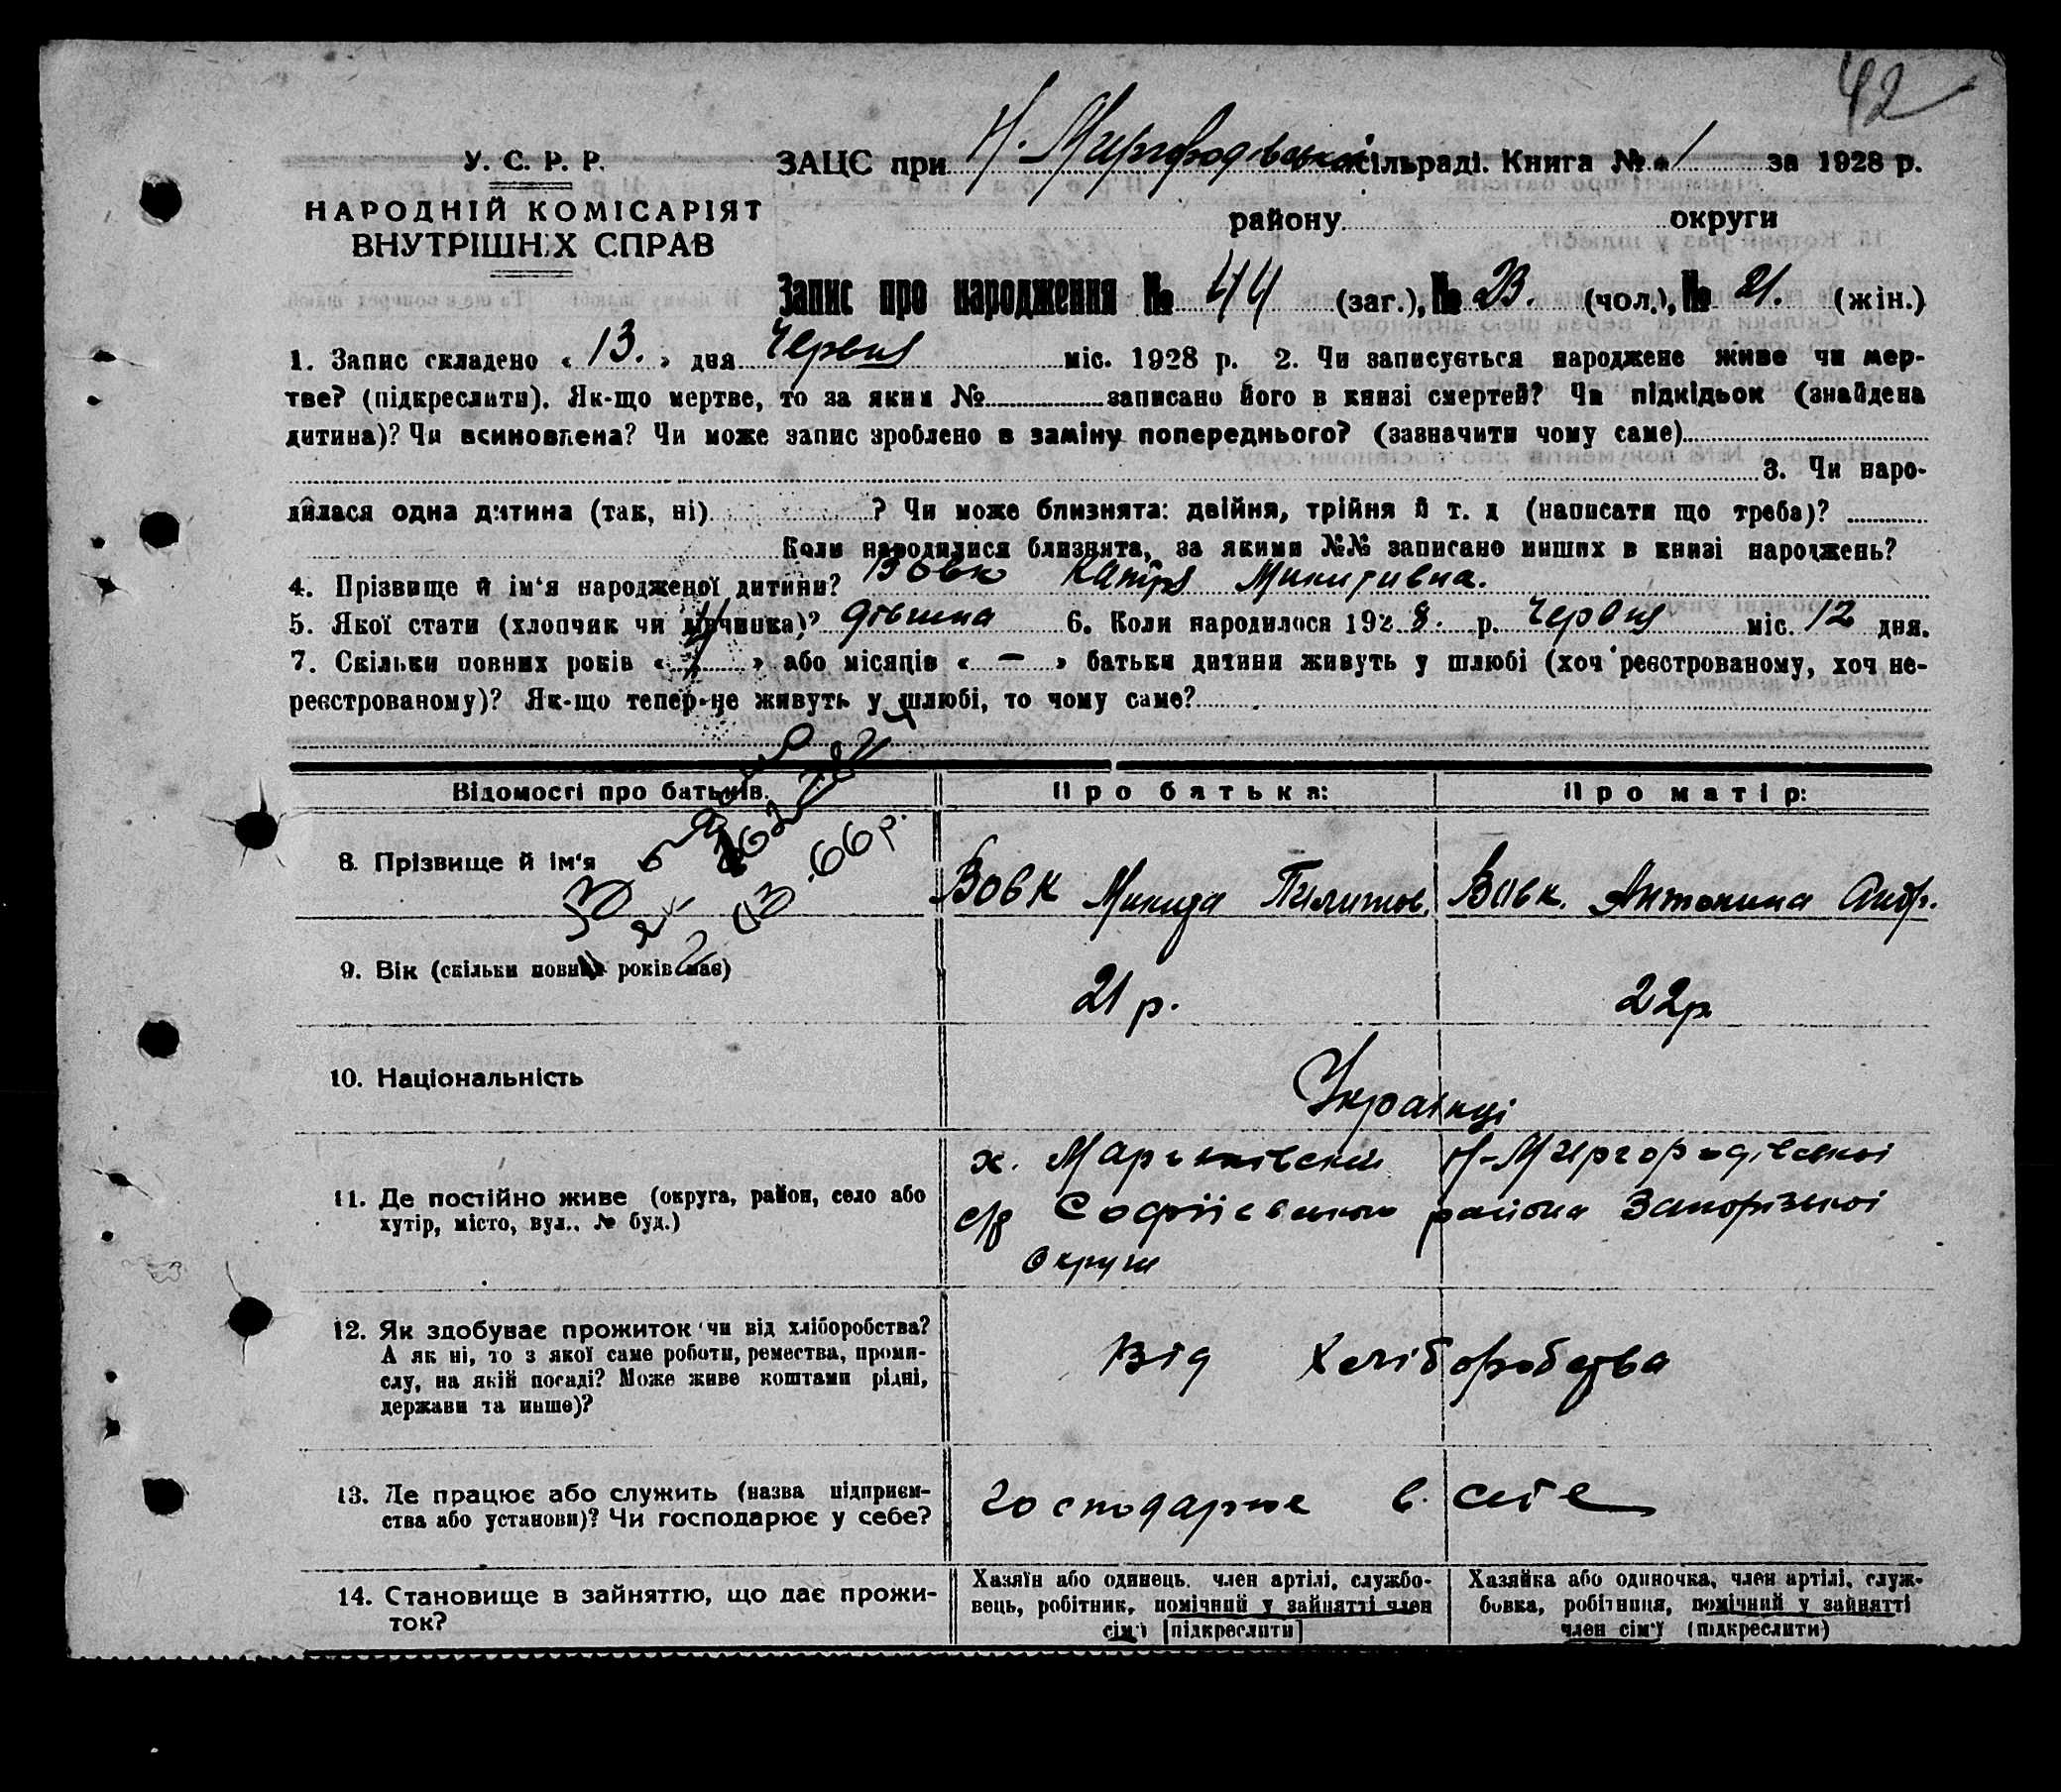 42
У. С. Р. Р.
НАРОДНІЙ КОМІСАРІЯТ
ВНУТРІШНІХ СПРАВ
ЗАЦС при Н. Миргородівській сільраді. Книга № 1 за 1928 р.
району округи
Запис про народження № 44 (заг.), № 23. (чол.), № 21. (жін.)
1. Запис складено « 13. » дня Червня міс. 1928 р. 2. Чи записується народжене живе чи мер-
тве? (підкреслити). Як-що мертве, то за яким № записано його в книзі смертей? Чи підкідьок (знайдена
дитина)? Чи всиновлена? Чи може запис зроблено в заміну попереднього? (зазначити чому саме)
3. Чи наро-
дилася одна дитина (так, ні) ? Чи може близнята: двійня, трійня й т. д (написати що треба)?
Коли народилися близнята, за якими №№ записано инших в книзі народжень?
4. Прізвище й ім'я народженої дитини? Вовк Катря Микитивна.
5. Якої стати (хлопчик чи дівчинка)? дівчина 6. Коли народилося 1928. р. Червня міс. 12 дня.
7. Скільки повних років « » або місяців « – » батьки дитини живуть у шлюбі (хоч реєстрованому, хоч не-
реєстрованому)? Як-що тепер не живуть у шлюбі, то чому саме?
Відомості про батьків. Про батька: Про матір:
8. Прізвище й ім'я Вовк Микита Пилипов. Вовк. Антонина Андр.
66 р.
9. Вік (скільки повних років має) 21 р. 22 р
10. Національність Українці
11. Де постійно живе (округа, район, село або
хутір, місто, вул., № буд.)
х. Н-Миргородівської
с/р Софіївського району Запорізької
округи
12. Як здобуває прожиток чи від хліборобства?
А як ні, то з якої саме роботи, ремества, проми-
слу, на якій посаді? Може живе коштами рідні,
держави та инше)?
Від Хліборобства
13. Де працює або служить (назва підприєм-
ства або установи)? Чи господарює у себе?
господарює в. селе
14. Становище в зайняттю, що дає прожи-
ток?
Хазяїн або одинець, член артілі, службо-
вець, робітник, помічний у зайнятті член
сім'ї [підкреслити]
Хазяйка або одиночка, член артілі, служ-
бовка, робітниця, помічний у зайнятті
член сім'ї (підкреслити)